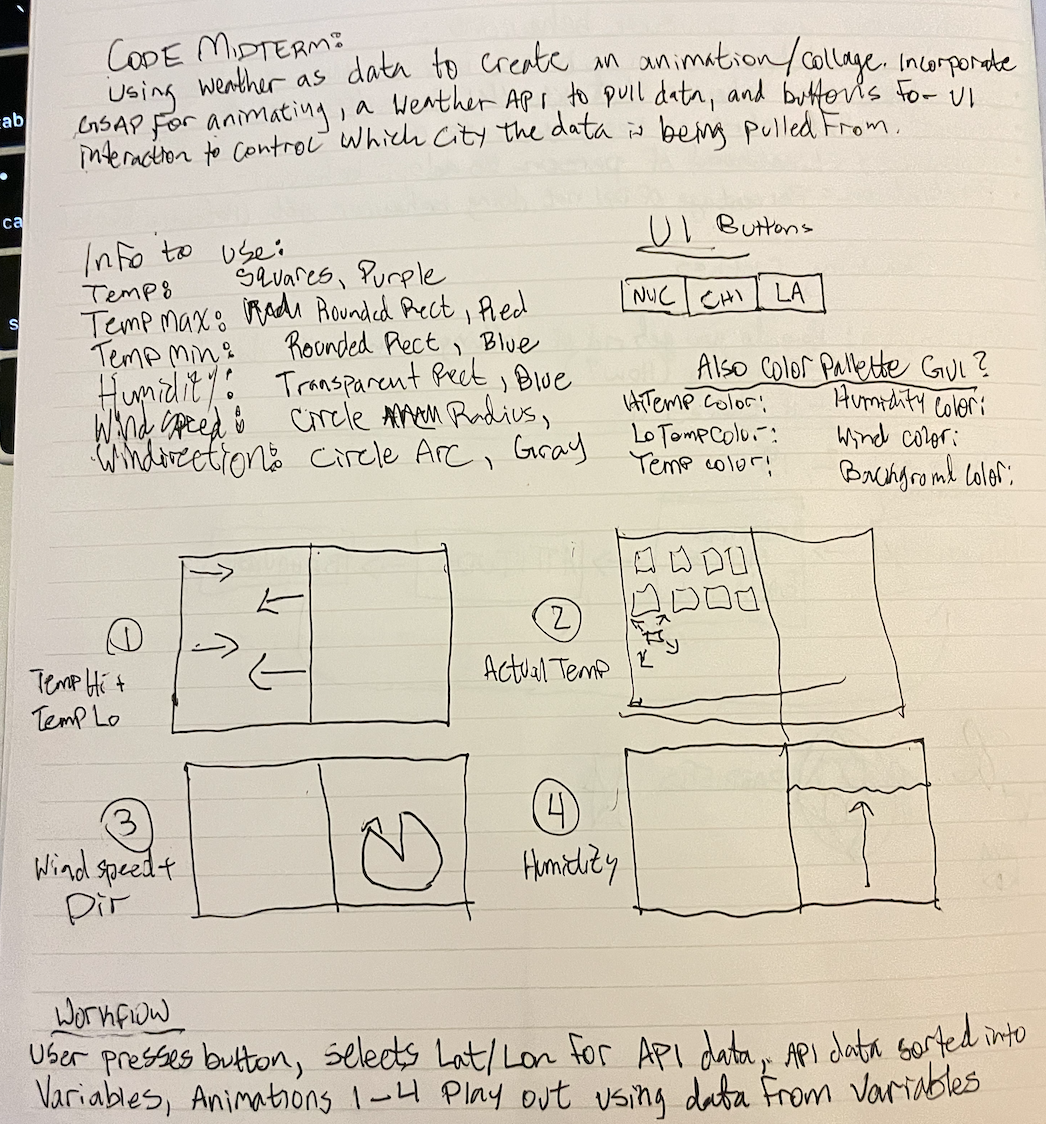 CODE MIDTERM:
Using weather as data to create an animation/collage. Incorporate
GSAP For animating, a Weather API to pull data, and buttons For UI
interaction to control which City the data is being pulled From.
Info to use:
Temp: Squares, Purple
Temp max: Rounded Rect, Red
Temp min: Rounded Rect, Blue
Humidity: Transparent Rect, Blue
Wind speed: Circle Radius,
Windirection: Circle Arc, Gray
UI Buttons
NYC CHI LA
Also Color Pallette GUI?
HiTemp Color: Humidity color:
LoTemp Color: Wind color:
Temp color: Background color:
1
Temp Hi +
Temp Lo
2
Actual Temp
3
Wind speed +
Dir
4
Humidity
Workflow
User presses button, selects Lat/Lon for API data, API data sorted into
Variables, Animations 1-4 Play out using data From Variables
ab
ca
s